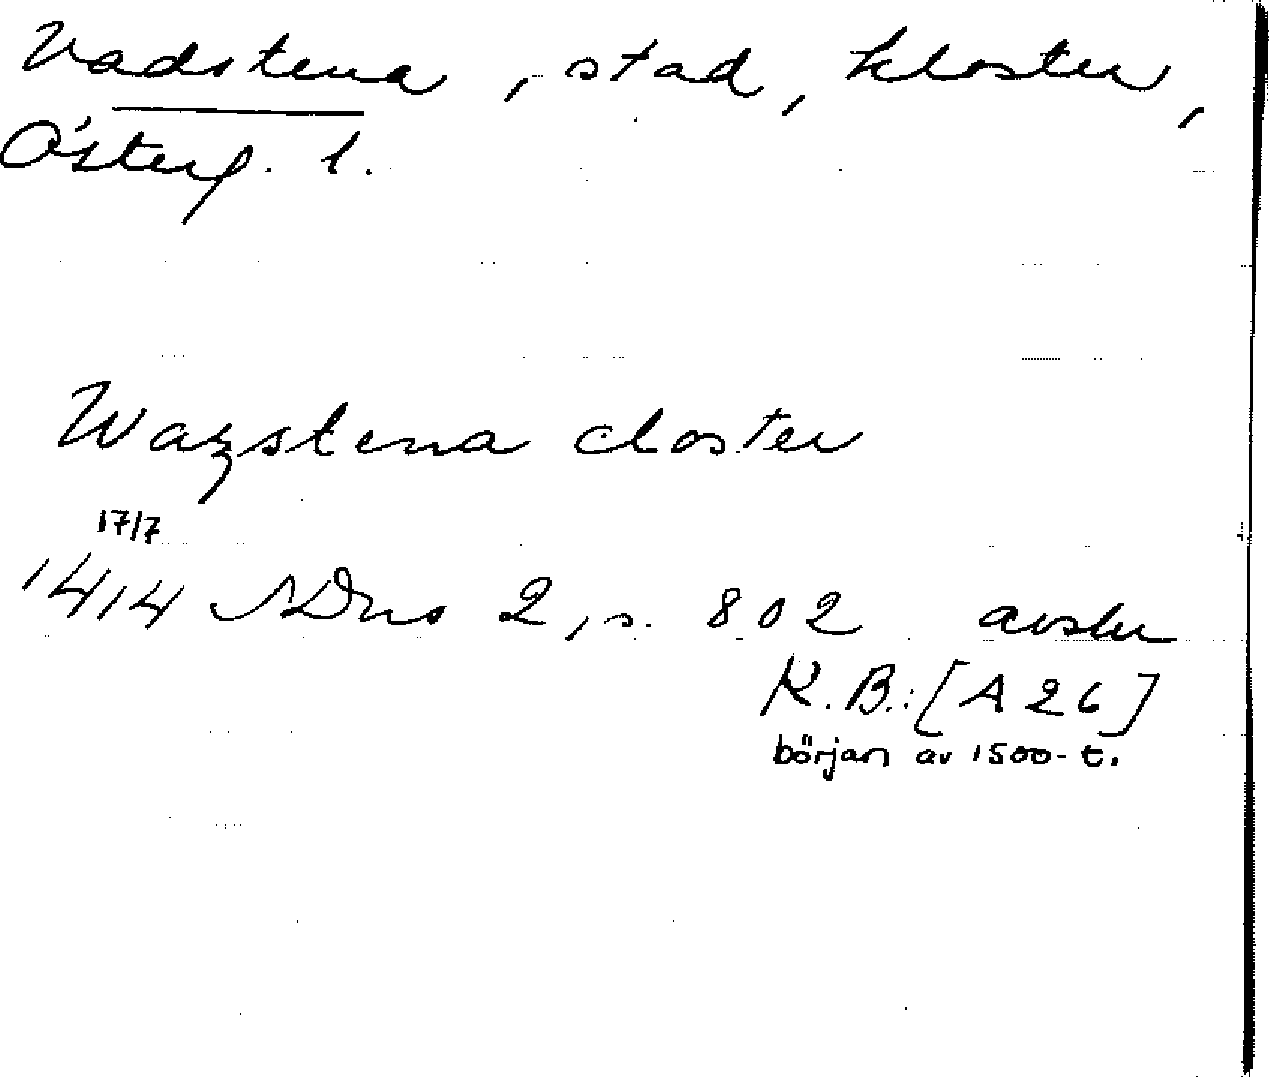 Vadstena, stad, kloster,
Österg. l.
Wazstena closter
17/7
1414 SDns 2, s. 802 avskr
K.B.: [A 26]
början av 1500-t.